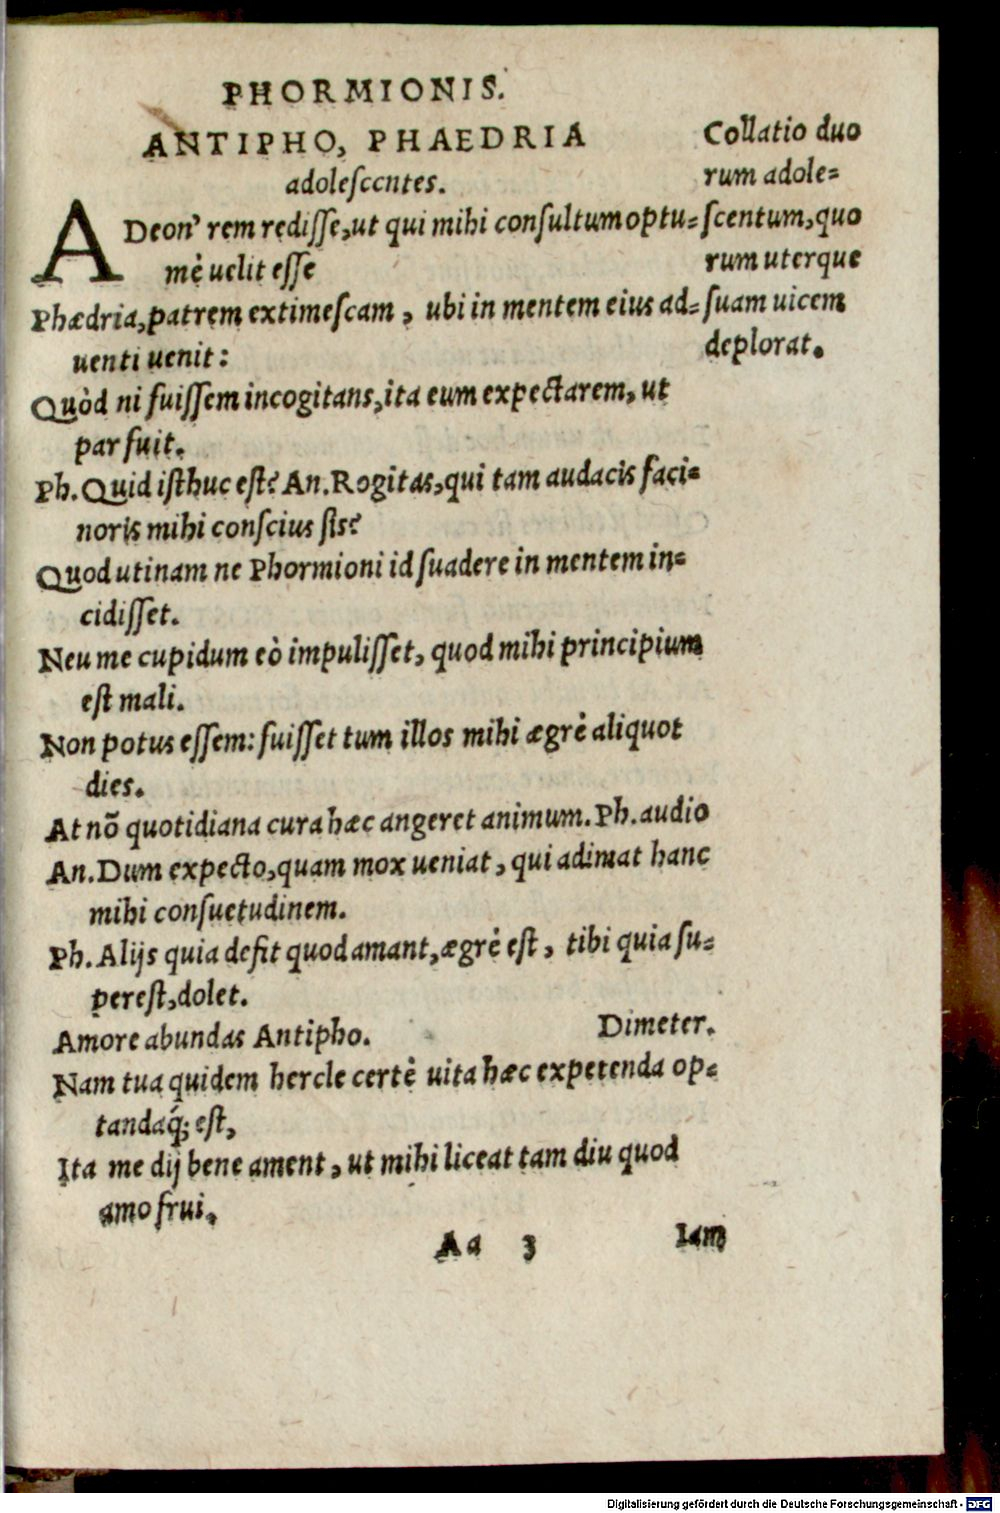 PHORMIONIS.
ANTIPHO, PHAEDRIA
adolescentes.
ADeon' rem redisse, ut qui mihi consultum optu-
mè uelit esse
Phædria, patrem extimescam, ubi in mentem eius ad-
uenti uenit:
Quòd ni fuissem incogitans, ita eum expectarem, ut
par fuit.
Ph. Quid isthuc est? An. Rogitas, qui tam audacis faci-
noris mihi conscius sis?
Quod utinam ne Phormioni id suadere in mentem in-
cidisset.
Neu me cupidum eò impulisset, quod mihi principium
est mali.
Non potus essem: fuisset tum illos mihi ægrè aliquot
dies.
At nõ quotidiana cura hæc angeret animum. Ph. audio
An. Dum expecto, quam mox ueniat, qui adimat hanc
mihi consuetudinem.
Ph. Alijs quia defit quod amant, ægrè est, tibi quia su-
perest, dolet.
Amore abundas Antipho. Dimeter.
Nam tua quidem hercle certè uita hæc expetenda op-
tandaq́; est,
Ita me dij bene ament, ut mihi liceat tam diu quod
amo frui.
Aa 3 Iam
Collatio duo
rum adole-
scentum, quo
rum uterque
suam uicem
deplorat.
Digitalisierung gefördert durch die Deutsche Forschungsgemeinschaft - DFG